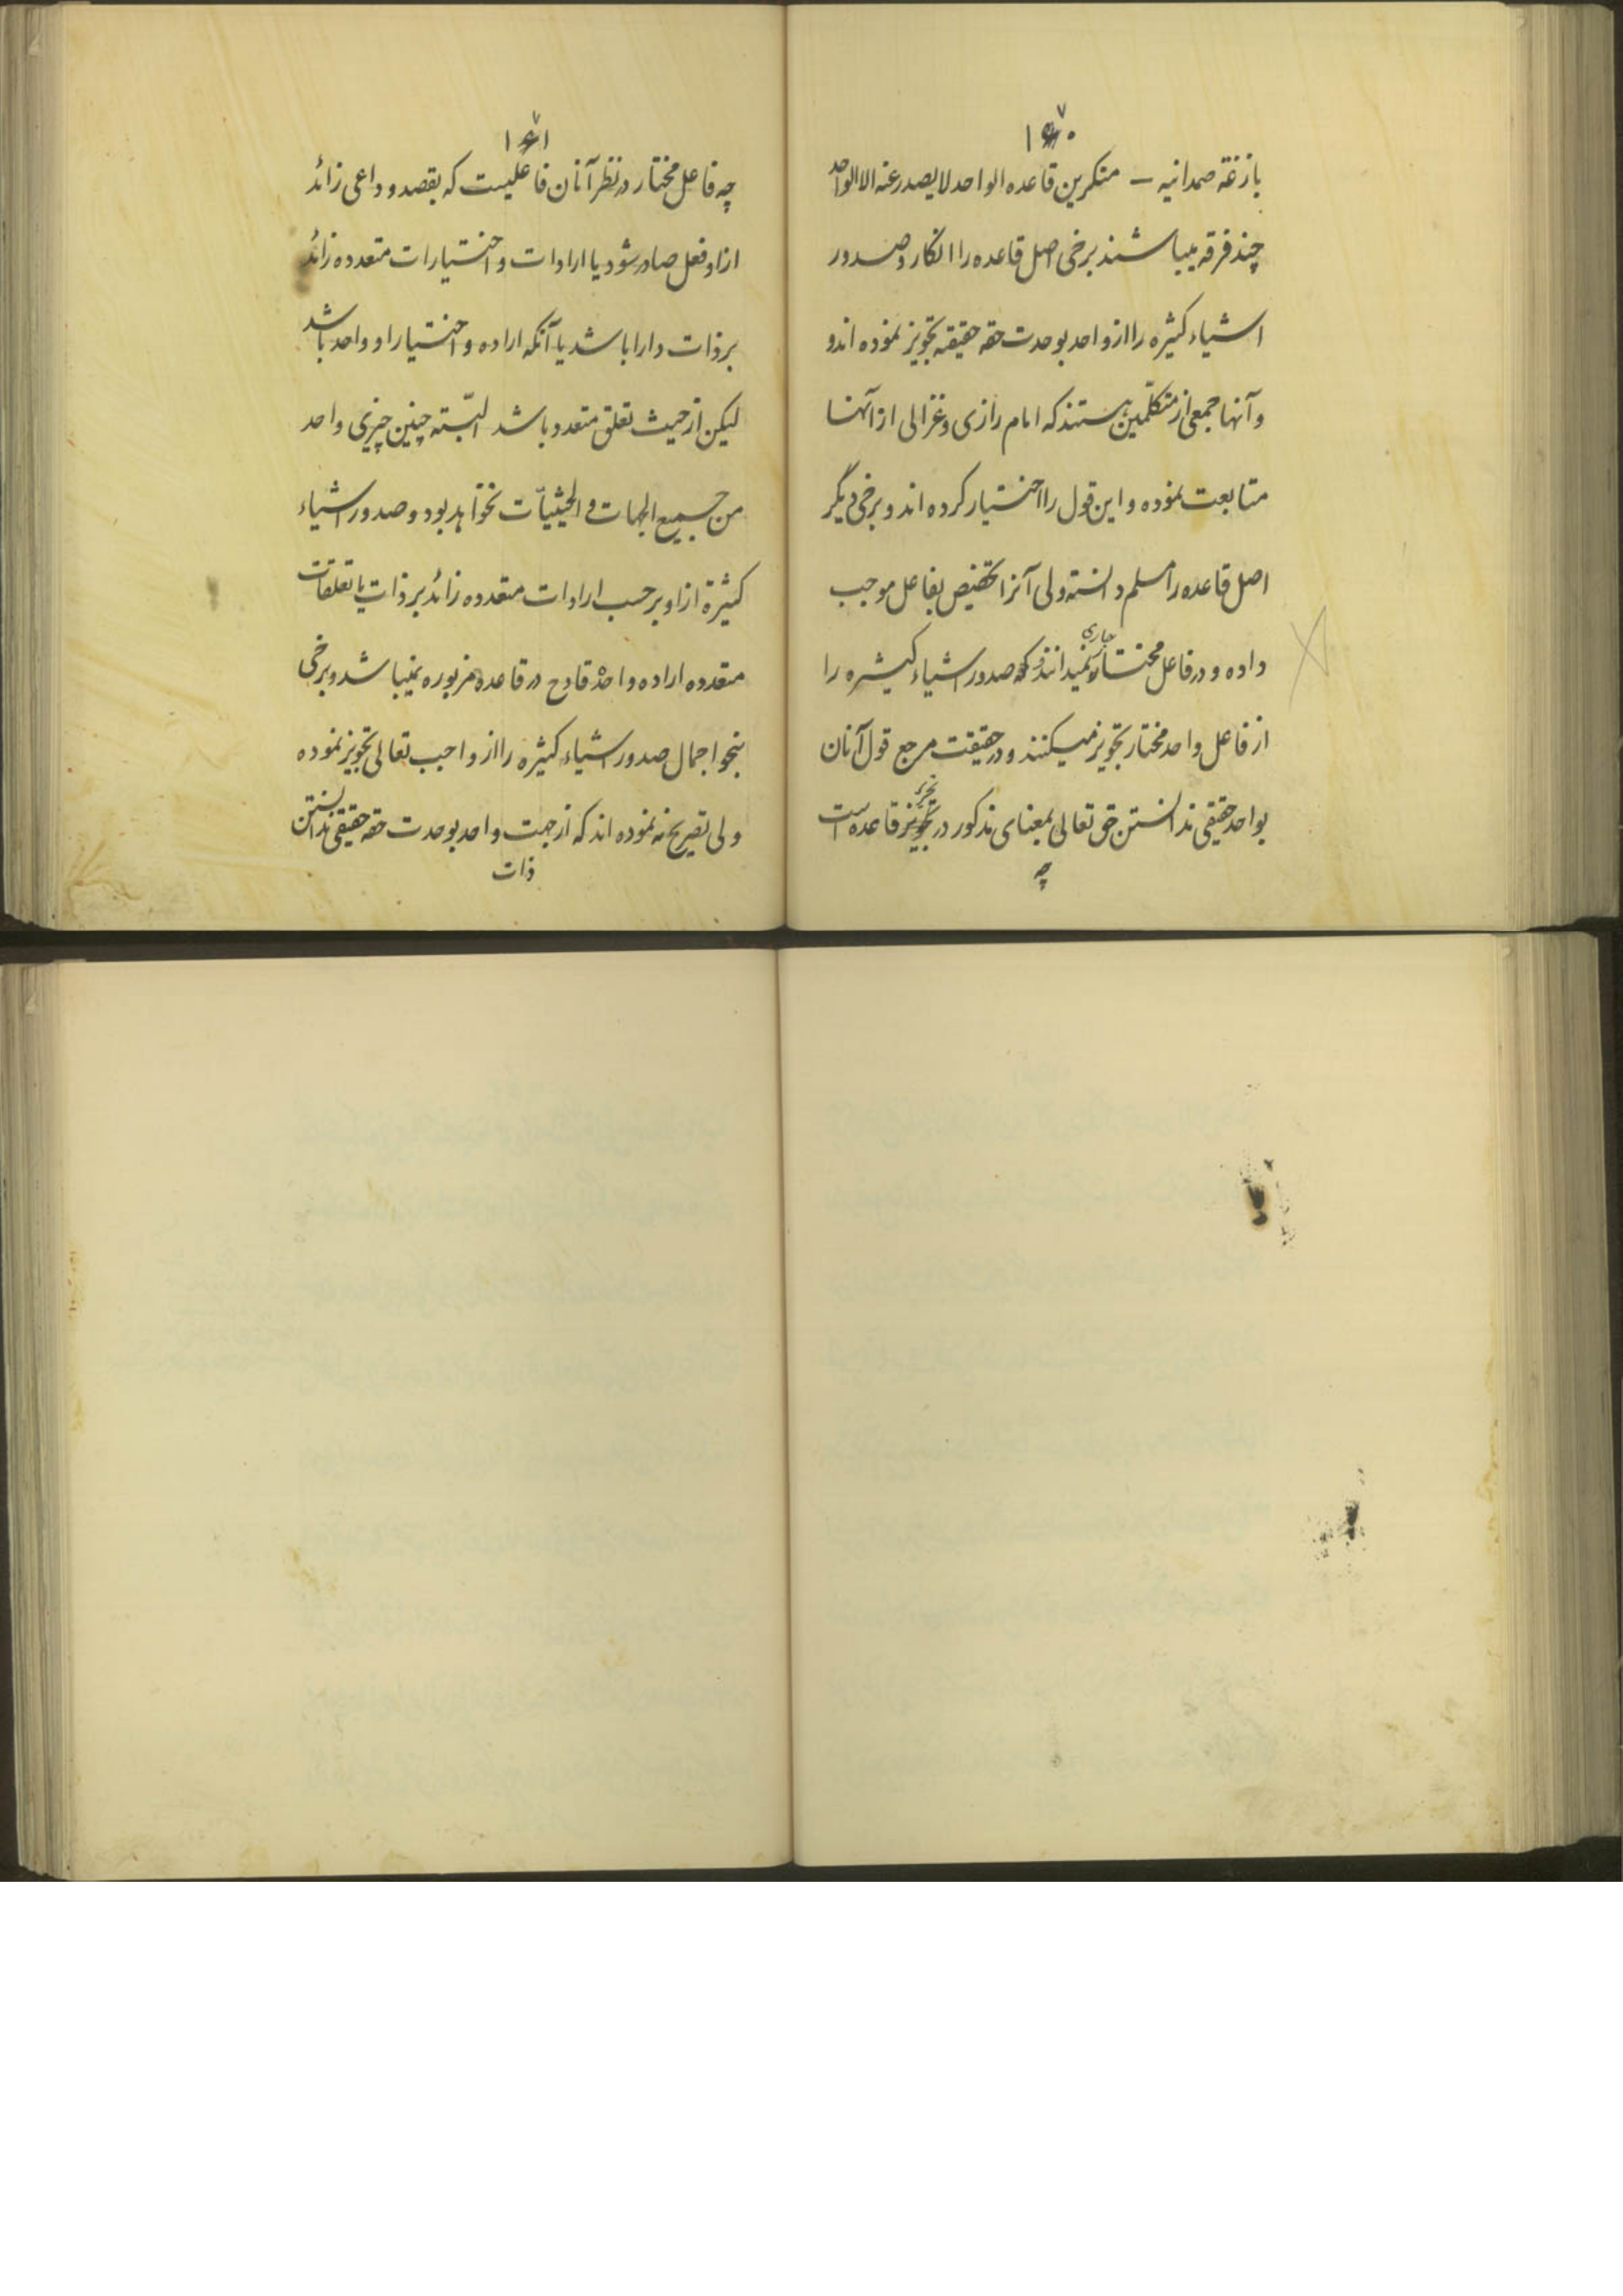 ۱۷۰
بازغة صمدانیه – منکرین قاعده الواحد لا یصدر عنه الا الواحد
چند فرقه میباشند برخی اصل قاعده را انکار و صدور
اشیاء کثیره را از واحد بوحدت حقه حقیقیه تجویز نموده اند و
و آنها جمعی از متکلّمین هستند که امام رازی و غزالی از آنها
متابعت نموده و این قول را اختیار کرده اند و برخی دیگر
اصل قاعده را مسلم دانسته ولی آنرا تخصیص بفاعل موجب
داده و در فاعل مختار جاری نمیدانند که صدور اشیاء کثیره را
از فاعل واحد مختار تجویز میکنند و در حقیقت مرجع قول آنان
بواحد حقیقی ندانستن حق تعالی بمعنای مذکور در تحریر قاعده است
چه
۱۷۱
چه فاعل مختار در نظر آنان فاعلیست که بقصد و داعی زائد
از او فعل صادر شود یا ارادات و اختیارات متعدده زائد
بر ذات دارا باشد یا آنکه اراده و اختیار او واحد باشد
لیکن از حیث تعلق متعدد باشد البتّه چنین چیزی واحد
من جمیع الجهات و الحیثیّات نخواهد بود و صدور اشیاء
کثیرة از او بر حسب ارادات متعدده زائد بر ذات یا تعلقات
متعدده اراده واحدة قادح در قاعده مزبوره نمیباشد و برخی
بنحو اجمال صدور اشیاء کثیره را از واجب تعالی تجویز نموده
ولی تصریح نه نموده اند که از جهت واحد بوحدت حقه حقیقی ندانستن
ذات